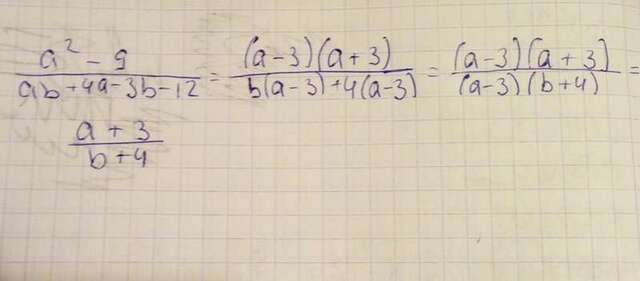 a² - 9 / ab + 4a - 3b - 12 = (a - 3)(a + 3) / b(a - 3) + 4(a - 3) = (a - 3)(a + 3) / (a - 3)(b + 4) =
a + 3 / b + 4